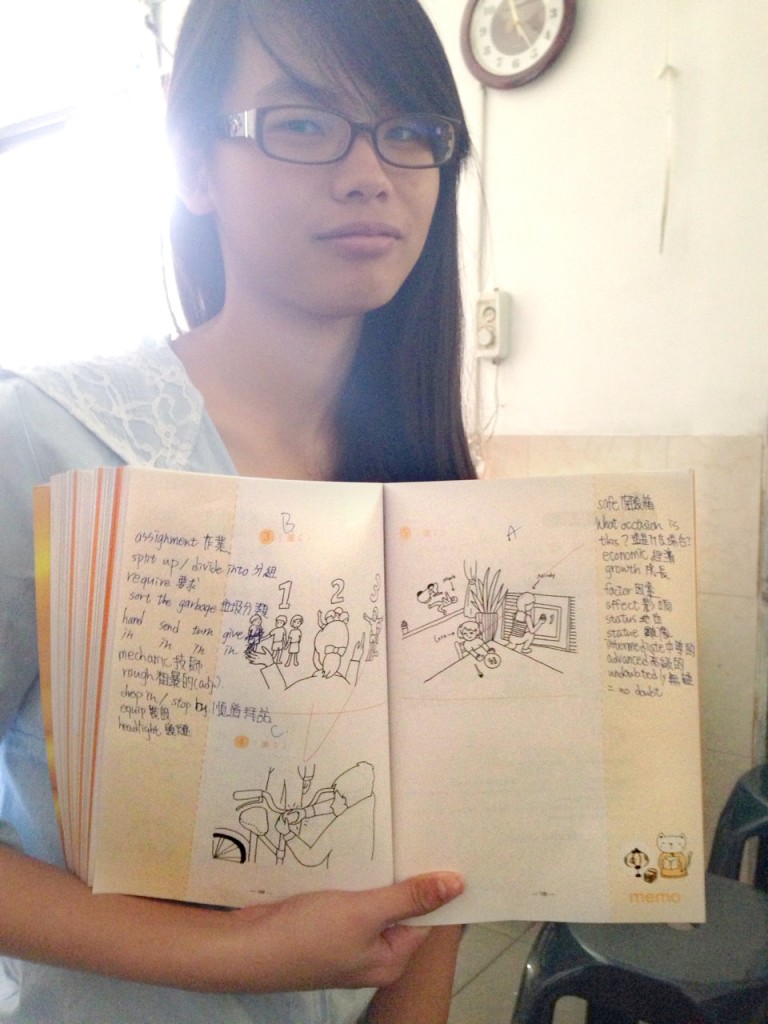 B
3
assignment 作業
split up / divide into 分組
require 要求
sort the garbage 垃圾分類
hand send turn give
in in in in
mechanic 技師
rough 粗暴的(adj)
drop in / stop by 順道拜訪
equip 裝備
headlight 頭燈
1 2
C
4
A
5
safe 保險箱
What occasion is
this? 這是什麼場合?
economic 經濟
growth 成長
factor 因素
affect 影響
status 地位
statue 雕像
intermediate 中等的
advanced 高級的
undoubtedly 無疑
= no doubt
memo